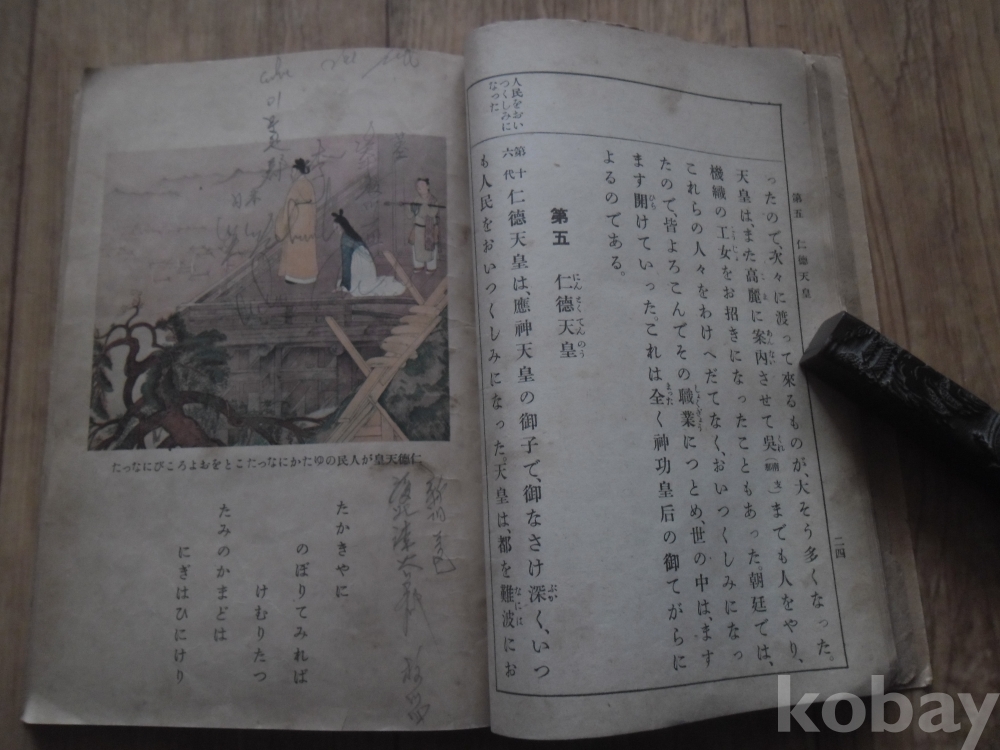 第五 仁德天皇
二四
ったので、次々に渡って來るものが、大そう多くなった。
天皇は、また高麗に案内させて吳までも人をやり、
機織の工女をお招きになったこともあった。朝廷では、
これらの人々をわけへだてなく、おいつくしみになっ
たので、皆よろこんでその職業につとめ、世の中は、ます
ます開けていった。これは全く神功皇后の御てがらに
よるのである。
第五 仁德天皇
にんとくてんのう
人民をおい
つくしみに
なった
第十六代 仁德天皇は、應神天皇の御子で、御なさけ深く、いつ
も人民をおいつくしみになった。天皇は、都を難波にお
仁德天皇が人民のゆたかになったことをおよろこびになった
たかきやに
のぼりてみれば
けむりたつ
たみのかまどは
にぎはひにけり
kobay